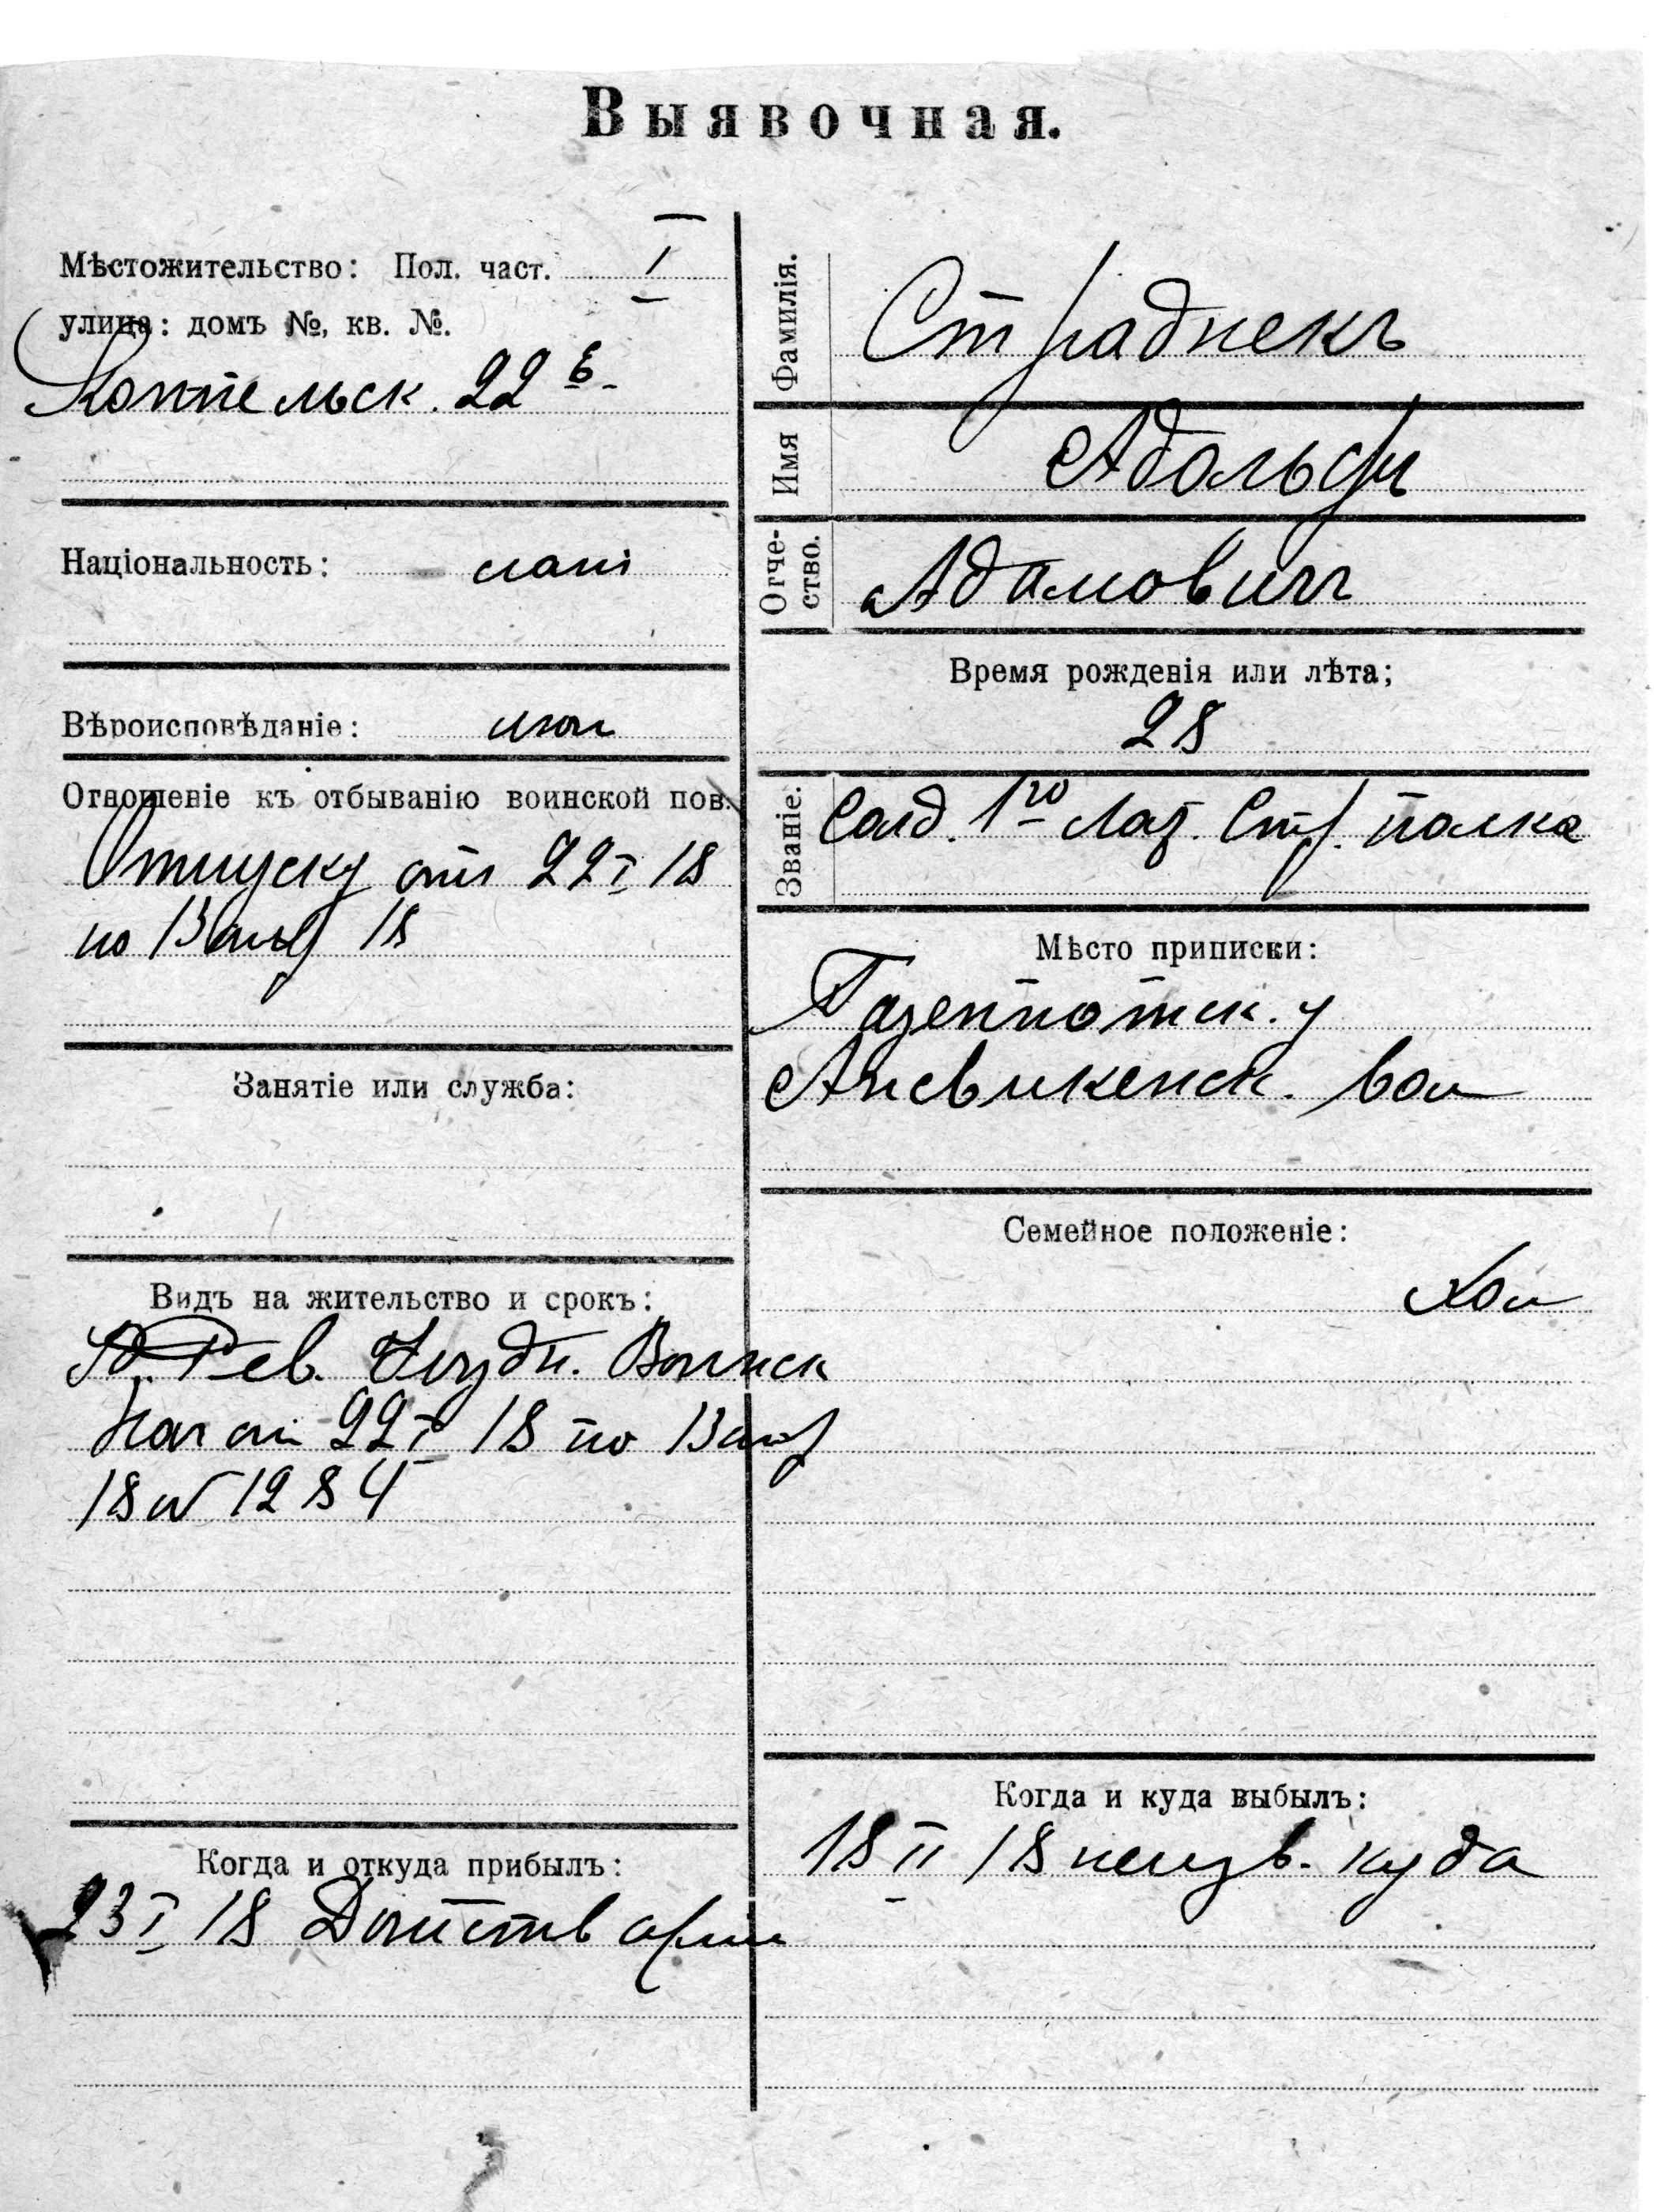 Выявочная.
Мѣстожительство: Пол. част. I
улица: домъ №, кв. №.
22 6
Національность: лат
Вѣроисповѣданіе: лют
Отношеніе къ отбыванію воинской пов.
Отпуску отъ 22 I 18
по 13 18
Занятіе или служба:
Видъ на жительство и срокъ:
Рев. Уѣздн. Воинск
Нач от 22 I 18 по 13
18 N 1284
Когда и откуда прибылъ:
23 I 18 Дѣйств арміи
Фамилія. Страдпекъ
Имя Адольфъ
Отче-
ство. Адамовичъ
Время рожденія или лѣта;
28
Званіе. Солд. 1го Лат. Стр. полка
Мѣсто приписки:
Газенпотск. у
вол
Семейное положеніе:
Хол
Когда и куда выбылъ:
18 II 18 неизв. куда